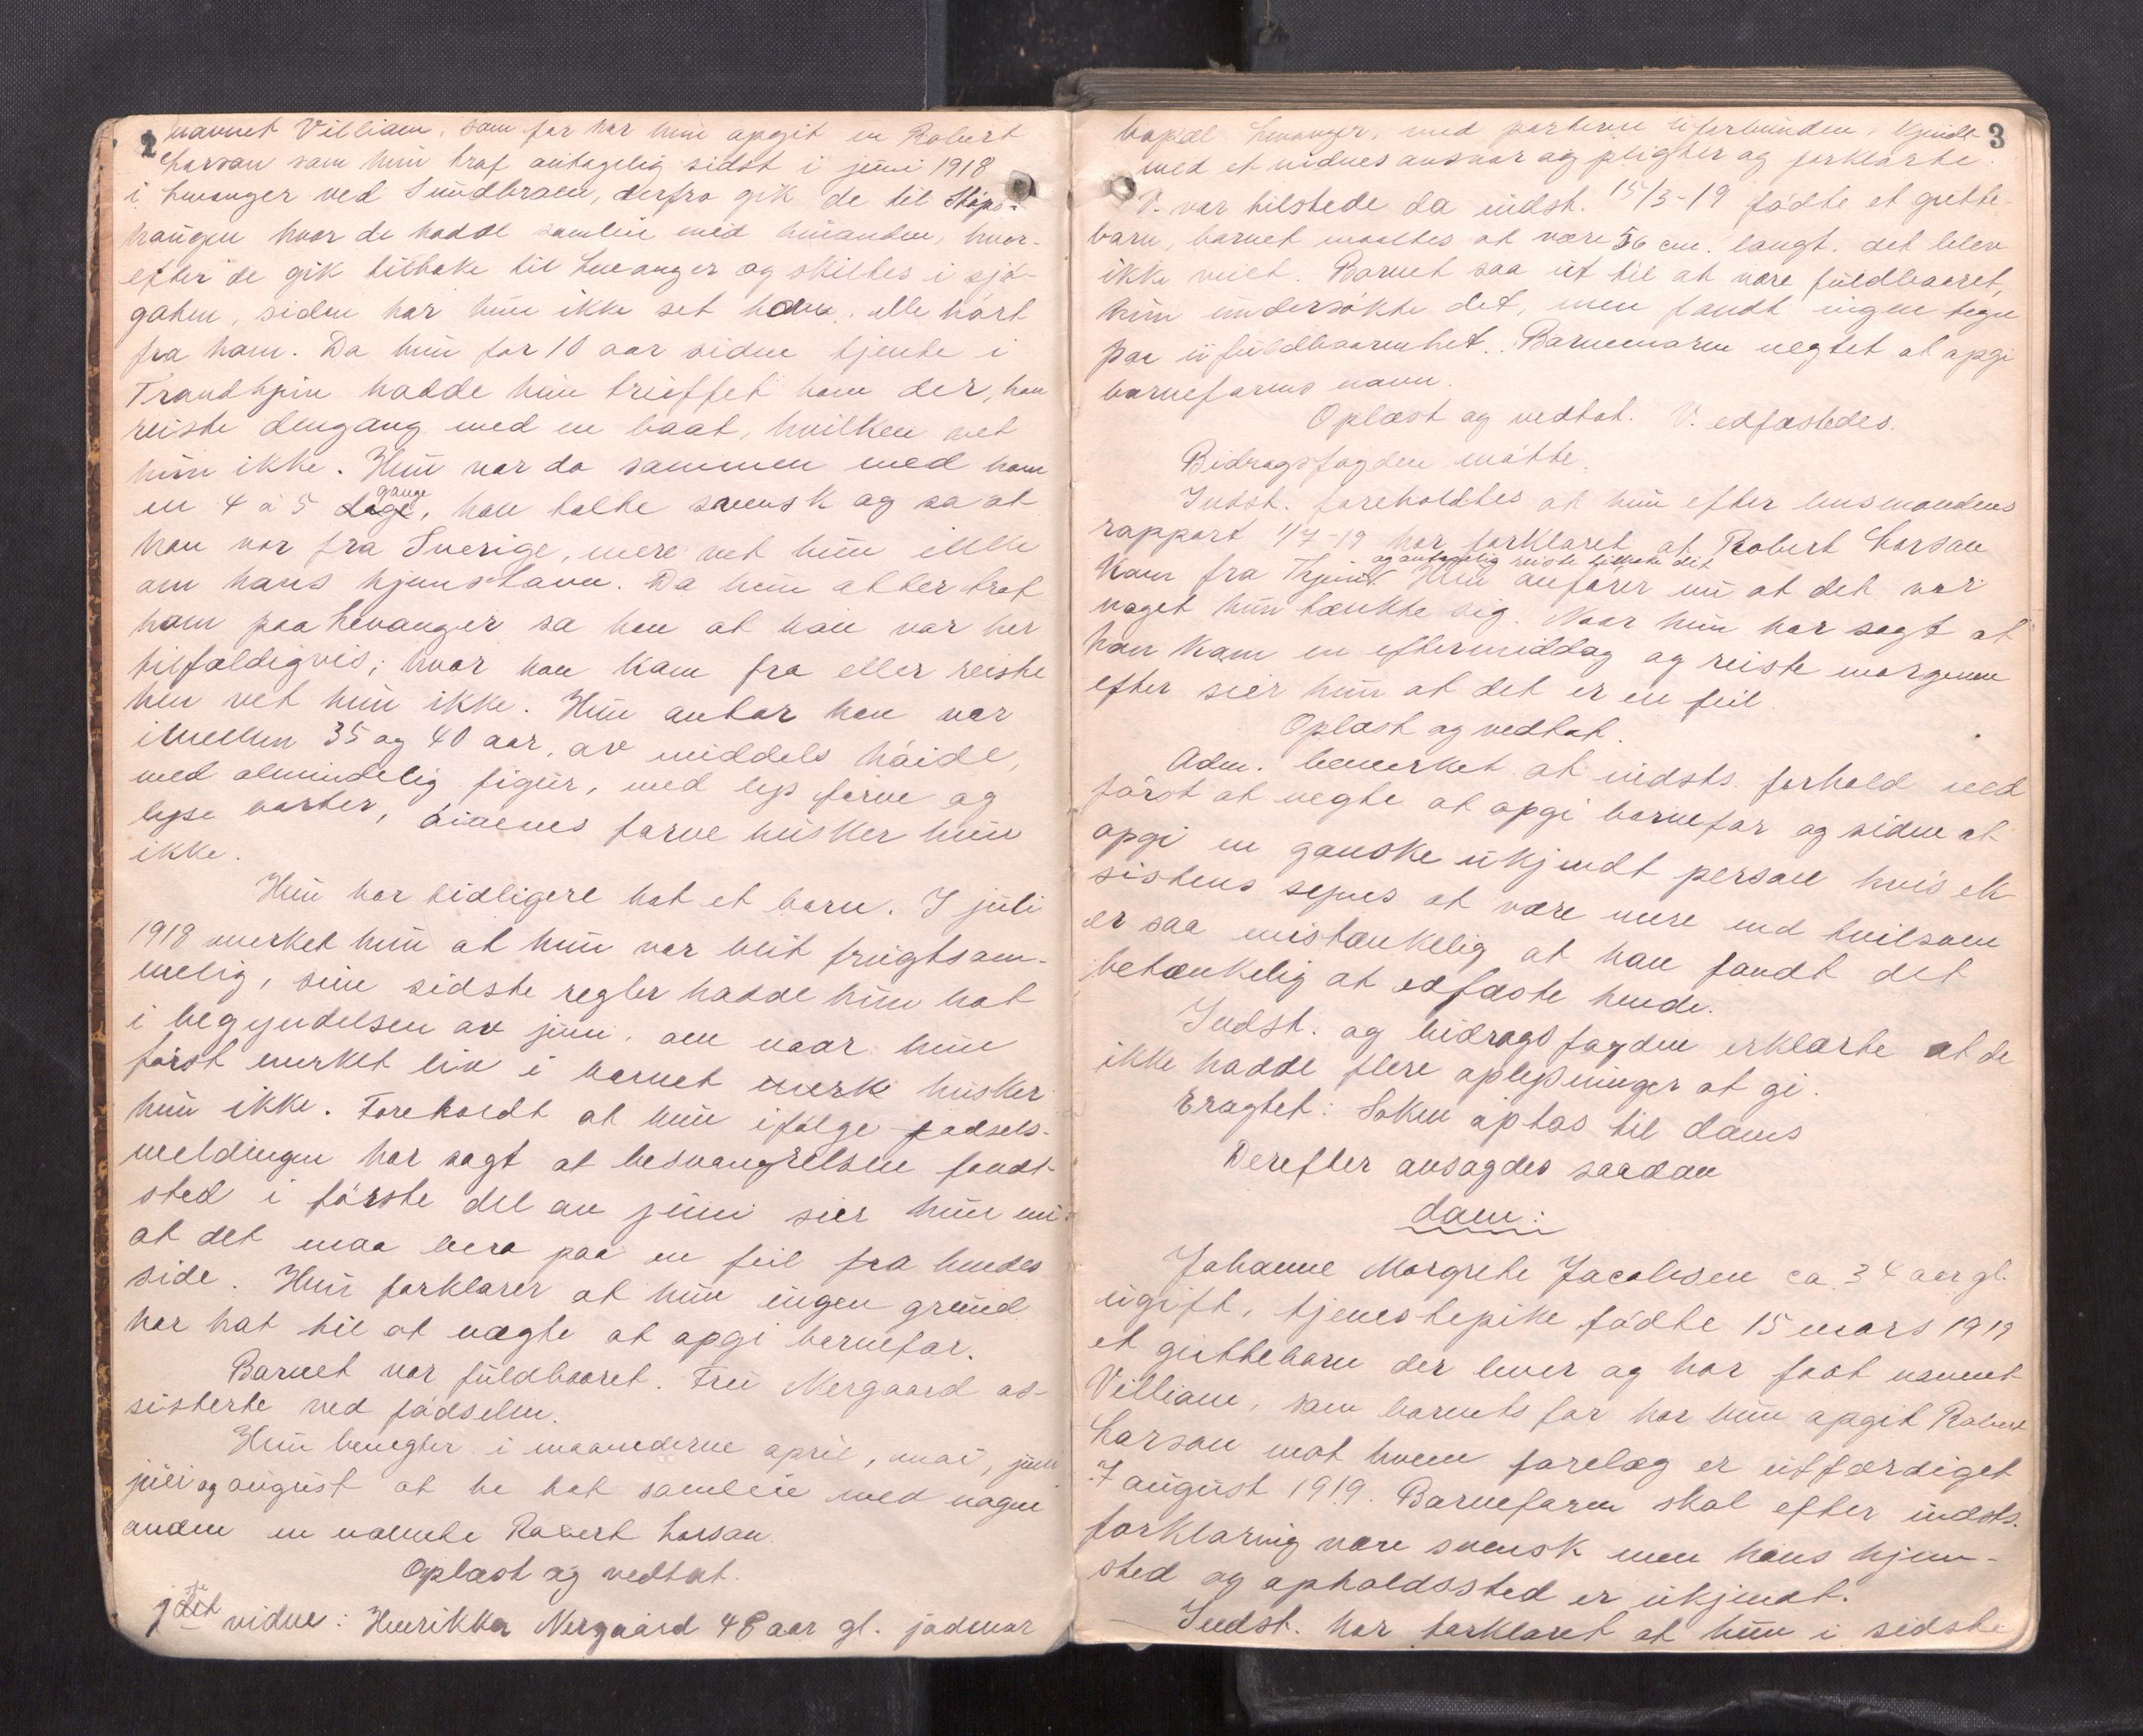 2
navnet Villiam, som far har hun opgit en Robert
Larsan som hun traf antagelig sidst i juni 1918
i Levanger ved Sundbroen, derfra gik de til Staps-
haugen hvor de hadde samleie med hinanden, hvor-
efter de gik tilbake til Levanger og skiltes i sjø-
gaten, siden har hun ikke set ham, elle hørt
fra ham. Da hun for 10 aar siden tjente i
Trondhjem hadde hun truffet ham der, han
reiste dengang med en baat, hvilken vet
hun ikke. Hun var da sammen med ham
en 4 a 5 dage gange, han talte svensk og sa at
han var fra Sverige, mere vet hun ikke
om hans hjemstavn. Da hun atter traf
ham paa Levanger sa han at han var her
tilfældigvis; hvor han kom fra eller reiste
hen vet hun ikke. Hun antar han var
imellem 35 og 40 aar, av middels høide,
med almindelig figur, med lys farve og
lyse barter, øinenes farve husker hun
ikke.
Hun har tidligere hat et barn. I juli
1918 merket hun at hun var blit frugtsom-
melig, sine sidste regler hadde hun hat
i begyndelsen av juni, om naar hun
først merket liv i barnet merk husker
hun ikke. Foreholdt at hun ifølge fødsels-
meldingen har sagt at besvangrelsen fandt-
sted i første del av juni sier hun nu
at det maa bero paa en feil fra hendes
side. Hun forklarer at hun ingen grund
har hat til at nægte at opgi barnefar.
Barnet var fuldbaaret. Fru Nergaard as-
sisterte ved fødselen.
Hun benegter i maanederne april, mai, juni
juli og august at ha hat samleie med nogen
anden en nævnte Robert Larsan.
Oplæst og vedtat.
1ste vidne: Henrikka Nergaard 48 aar gl. jodmor
3
bopæl Levanger, med parterne uforbunden, kjendt
med et vidnes ansvar og pligter og forklarte:
V. var tilstede da indst. 15/3-19 fødte et gutte-
barn, barnet maaltes at være 56 cm. langt, det blev
ikke veiet. Barnet saa ut til at være fuldbaaret,
hun undersøkte det, men fandt ingen tegn
paa ufuldbaarenhet. Barnemoren negtet at opgi
barnefarens navn.
Oplæst og vedtat. V. edfæstedes.
Bidragsfogden møtte.
Indst. foreholdtes at hun efter lensmandens
rapport 1/7-19 har forklaret at Robert Larsan
og antagelig reiste tilbake dit
kom fra Thjem. Hun anfører nu at det var
noget hun tænkte sig. Naar hun har sagt at
han kom en eftermiddag og reiste morgenen
efter sier hun at det er en feil.
Oplæst og vedtat.
Adm. bemerket at indsts. forhold ved
først at negte at opgi barnefar og siden at
opgi en ganske ukjendt person hvis ek-
sistens synes at være mere end tvilsom
er saa mistænkelig at han fandt det
betænkelig at edfæste hende.
Indst. og bidragsfogden erklærte at de
ikke hadde flere oplysninger at gi.
Eragtet: Saken optas til doms
Derefter avsagdes saadan
dom:
Johanne Margrete Jacobsen ca. 34 aar gl.
ugift, tjenestepike fødte 15 mars 1919
et guttebarn der lever og har faat navnet
Villiam, som barnets far har hun opgit Robert
Larson mot hvem forelæg er utfærdiget
7 august 1919. Barnefaren skal efter indsts.
forklaring være svensk men hans hjem-
sted og opholdssted er ukjendt.
Indst. har forklaret at hun i sidste